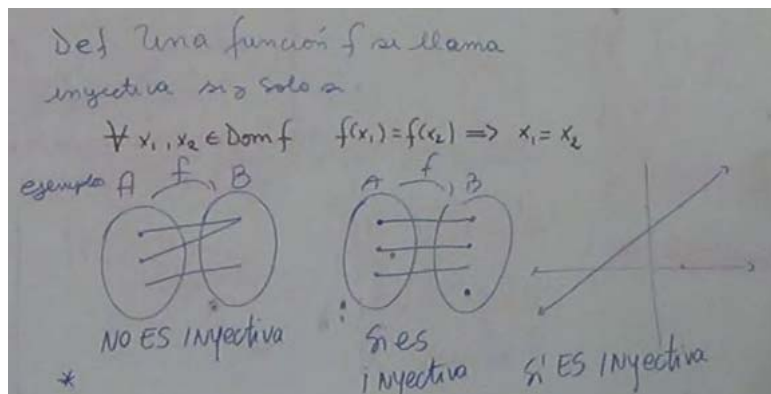 Def Una función f se llama
inyectiva si y solo si
∀ x₁, x₂ ∈ Dom f f(x₁) = f(x₂) => x₁ = x₂
ejemplo A f B A f B
NO ES INyectiva
Si es
iNyectiva
Sí ES INyectiva
*